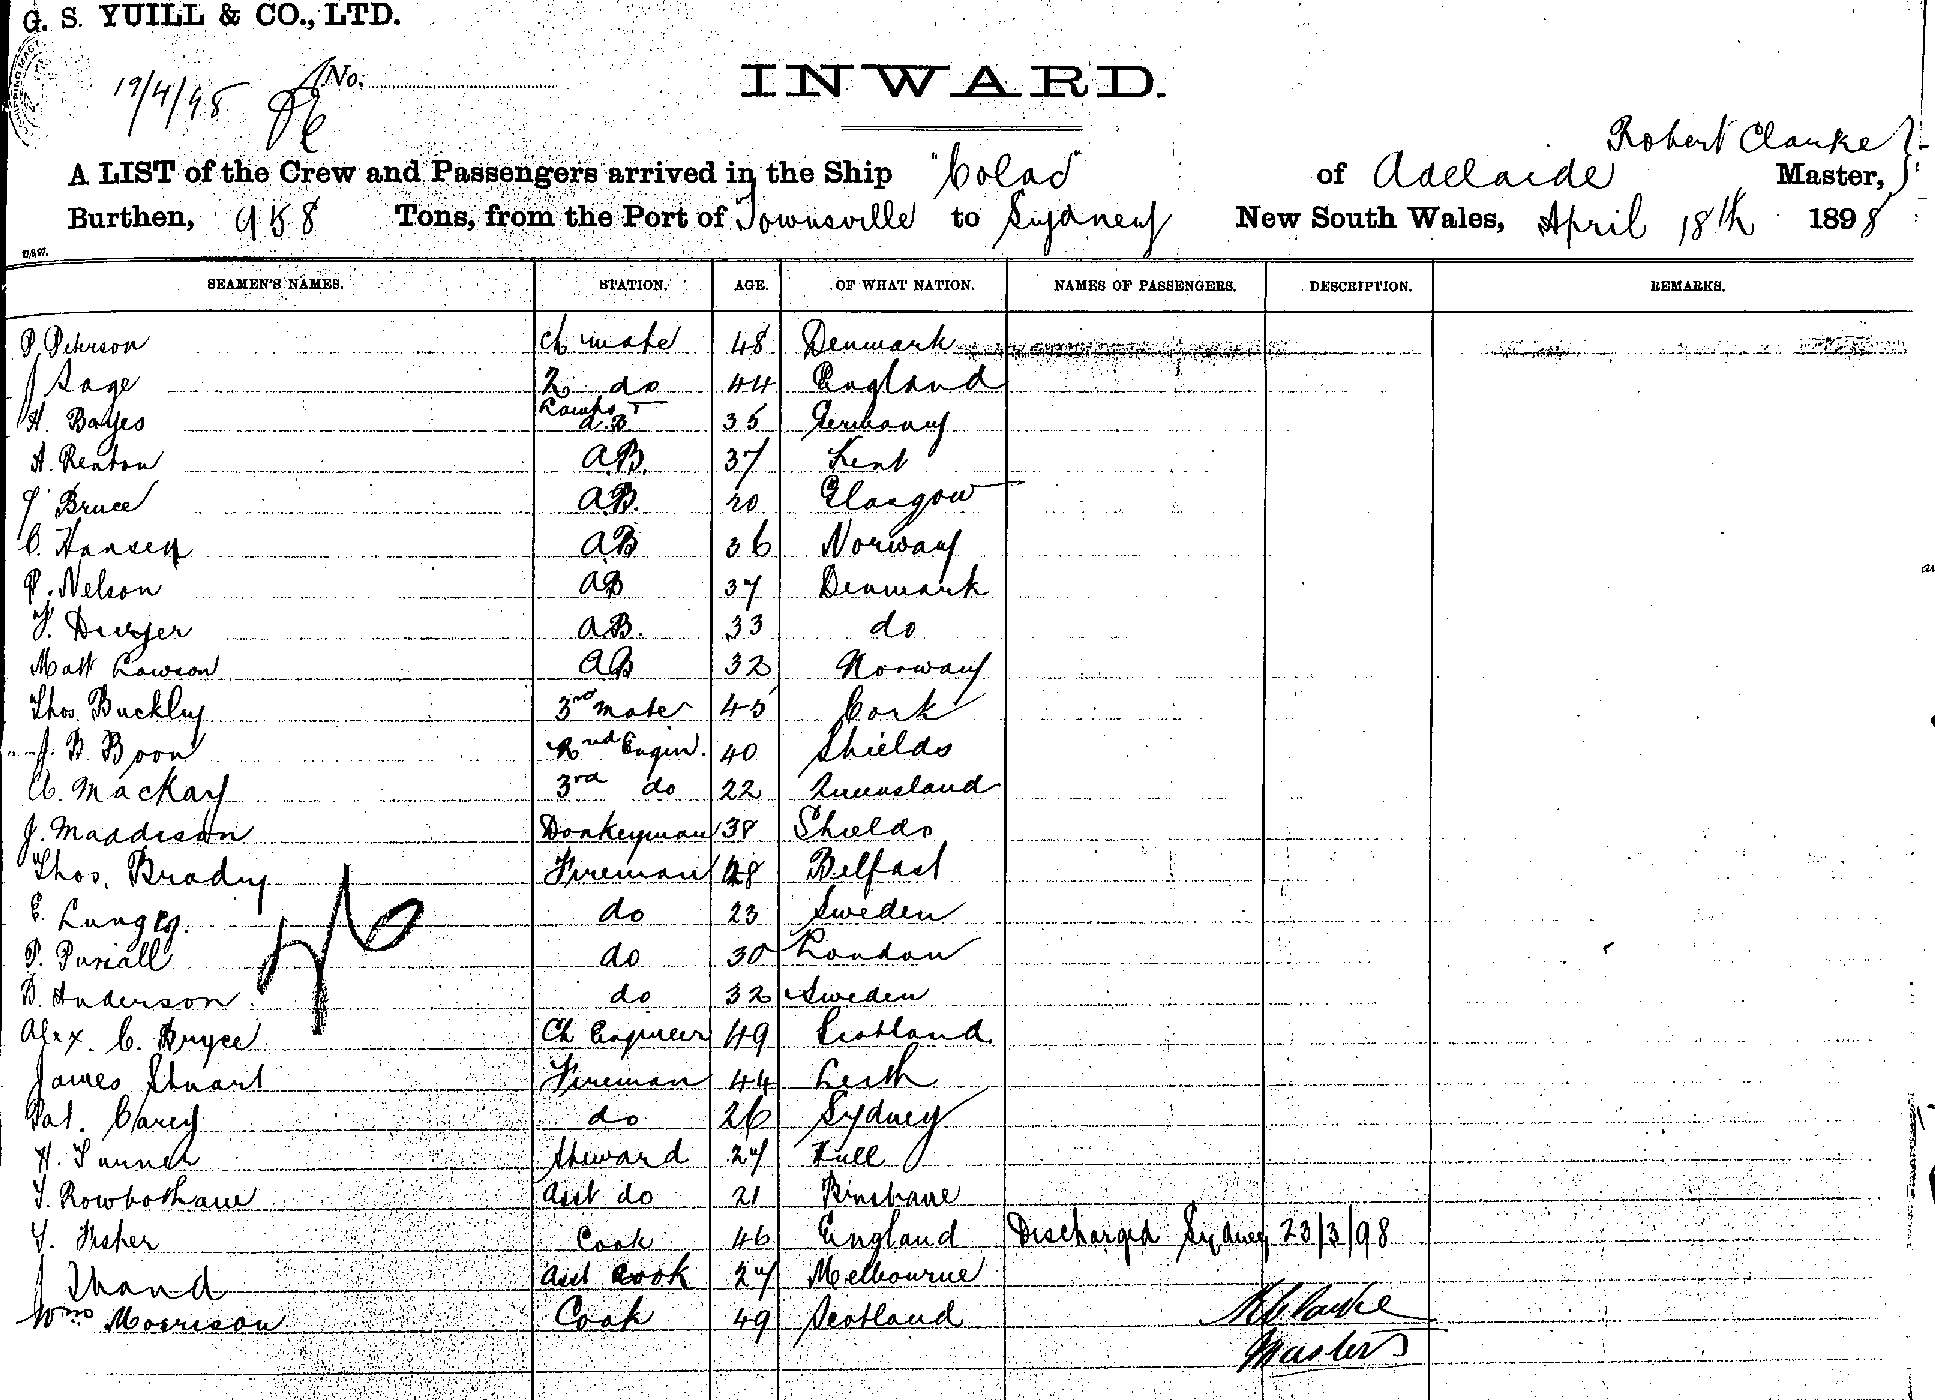 G. S. YUILL & CO., LTD.
19/4/98 No.
INWARD.
Robert Clarke
A LIST of the Crew and Passengers arrived in the Ship "Colac" of Adelaide Master,
Burthen, 958 Tons, from the Port of Townsville to Sydney New South Wales, April 18th 1898
SEAMEN'S NAMES. STATION. AGE. OF WHAT NATION. NAMES OF PASSENGERS. DESCRIPTION. REMARKS.
P Peterson Ch mate 48 Denmark
J Sage 2 do 44 England
H. Bayes Lamps A.B 35 Germany
A. Renton A.B. 37 Kent
J Bruce A.B. 20 Glasgow
C. Hansen AB 36 Norway
P. Nelson AB 37 Denmark
F. Dwyer AB. 33 do
Matt Lawson AB 32 Norway
Thos Buckley 3rd Mate 45 Cork
J. B. Boon 2nd Engin. 40 Shields
A. Mackay 3rd do 22 Queensland
J. Maddison Donkeyman 38 Shields
Thos. Brady Fireman 28 Belfast
E. do 23 Sweden
P. Pursall do 30 London
B. Anderson do 32 Sweden
Alex. C. Bryce Ch Engineer 49 Scotland
James Stuart Fireman 44 Leith
Pat. Carey do 26 Sydney
H. Turner Steward 27 Hull
T. Rowbotham Asst do 21 Brisbane
T. Fisher Cook 46 England Discharged Sydney 23/3/98
J Asst Cook 27 Melbourne
Wm Morrison Cook 49 Scotland
R Clarke
Master